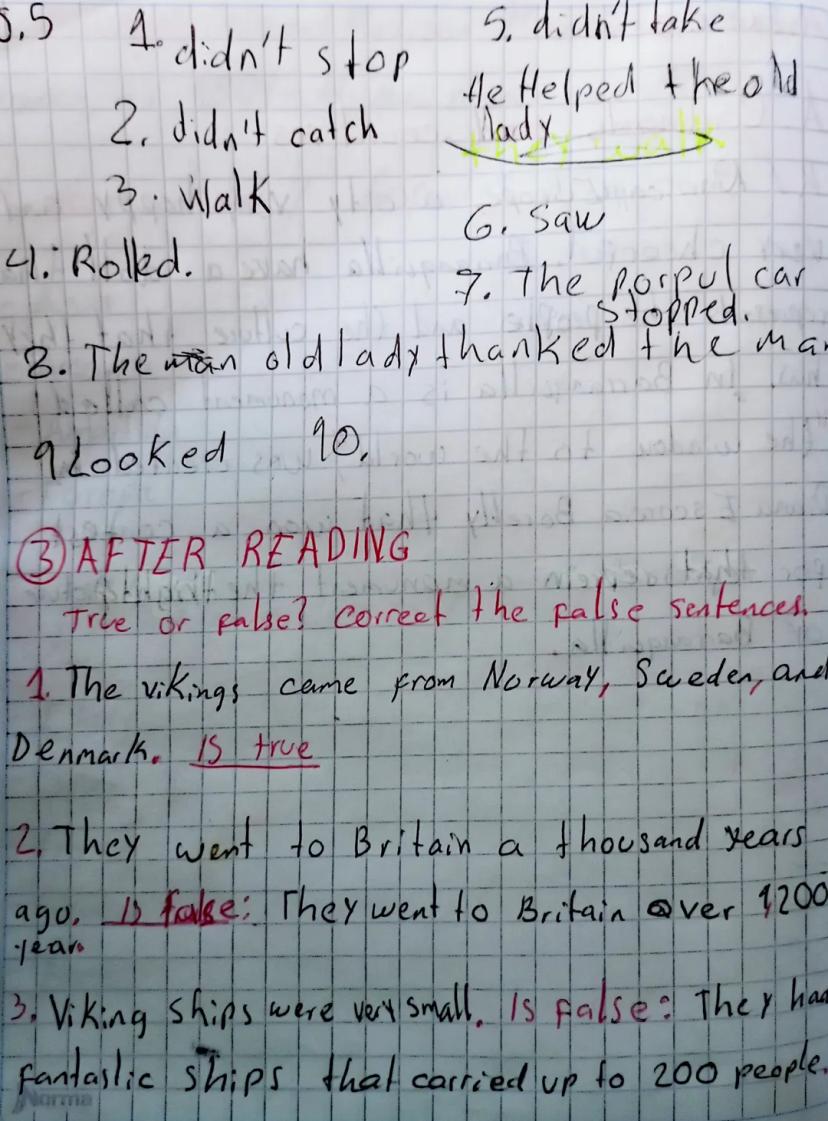 5.5
1. didn't stop
2. didn't catch
3. Walk
4. Rolled.
5. didn't take
He Helped the old
lady
they walk
6. Saw
7. The porpul car
stopped.
8. The man old lady thanked the ma
9 Looked 10.
③ AFTER READING
True or false? Correct the false sentences.
1. The vikings came from Norway, Sweden, and
Denmark. IS true
2. They went to Britain a thousand years
ago. Is false: They went to Britain over 1200
years
3. Viking ships were very small. Is false: They had
fantaslic ships that carried up to 200 people.
Norma